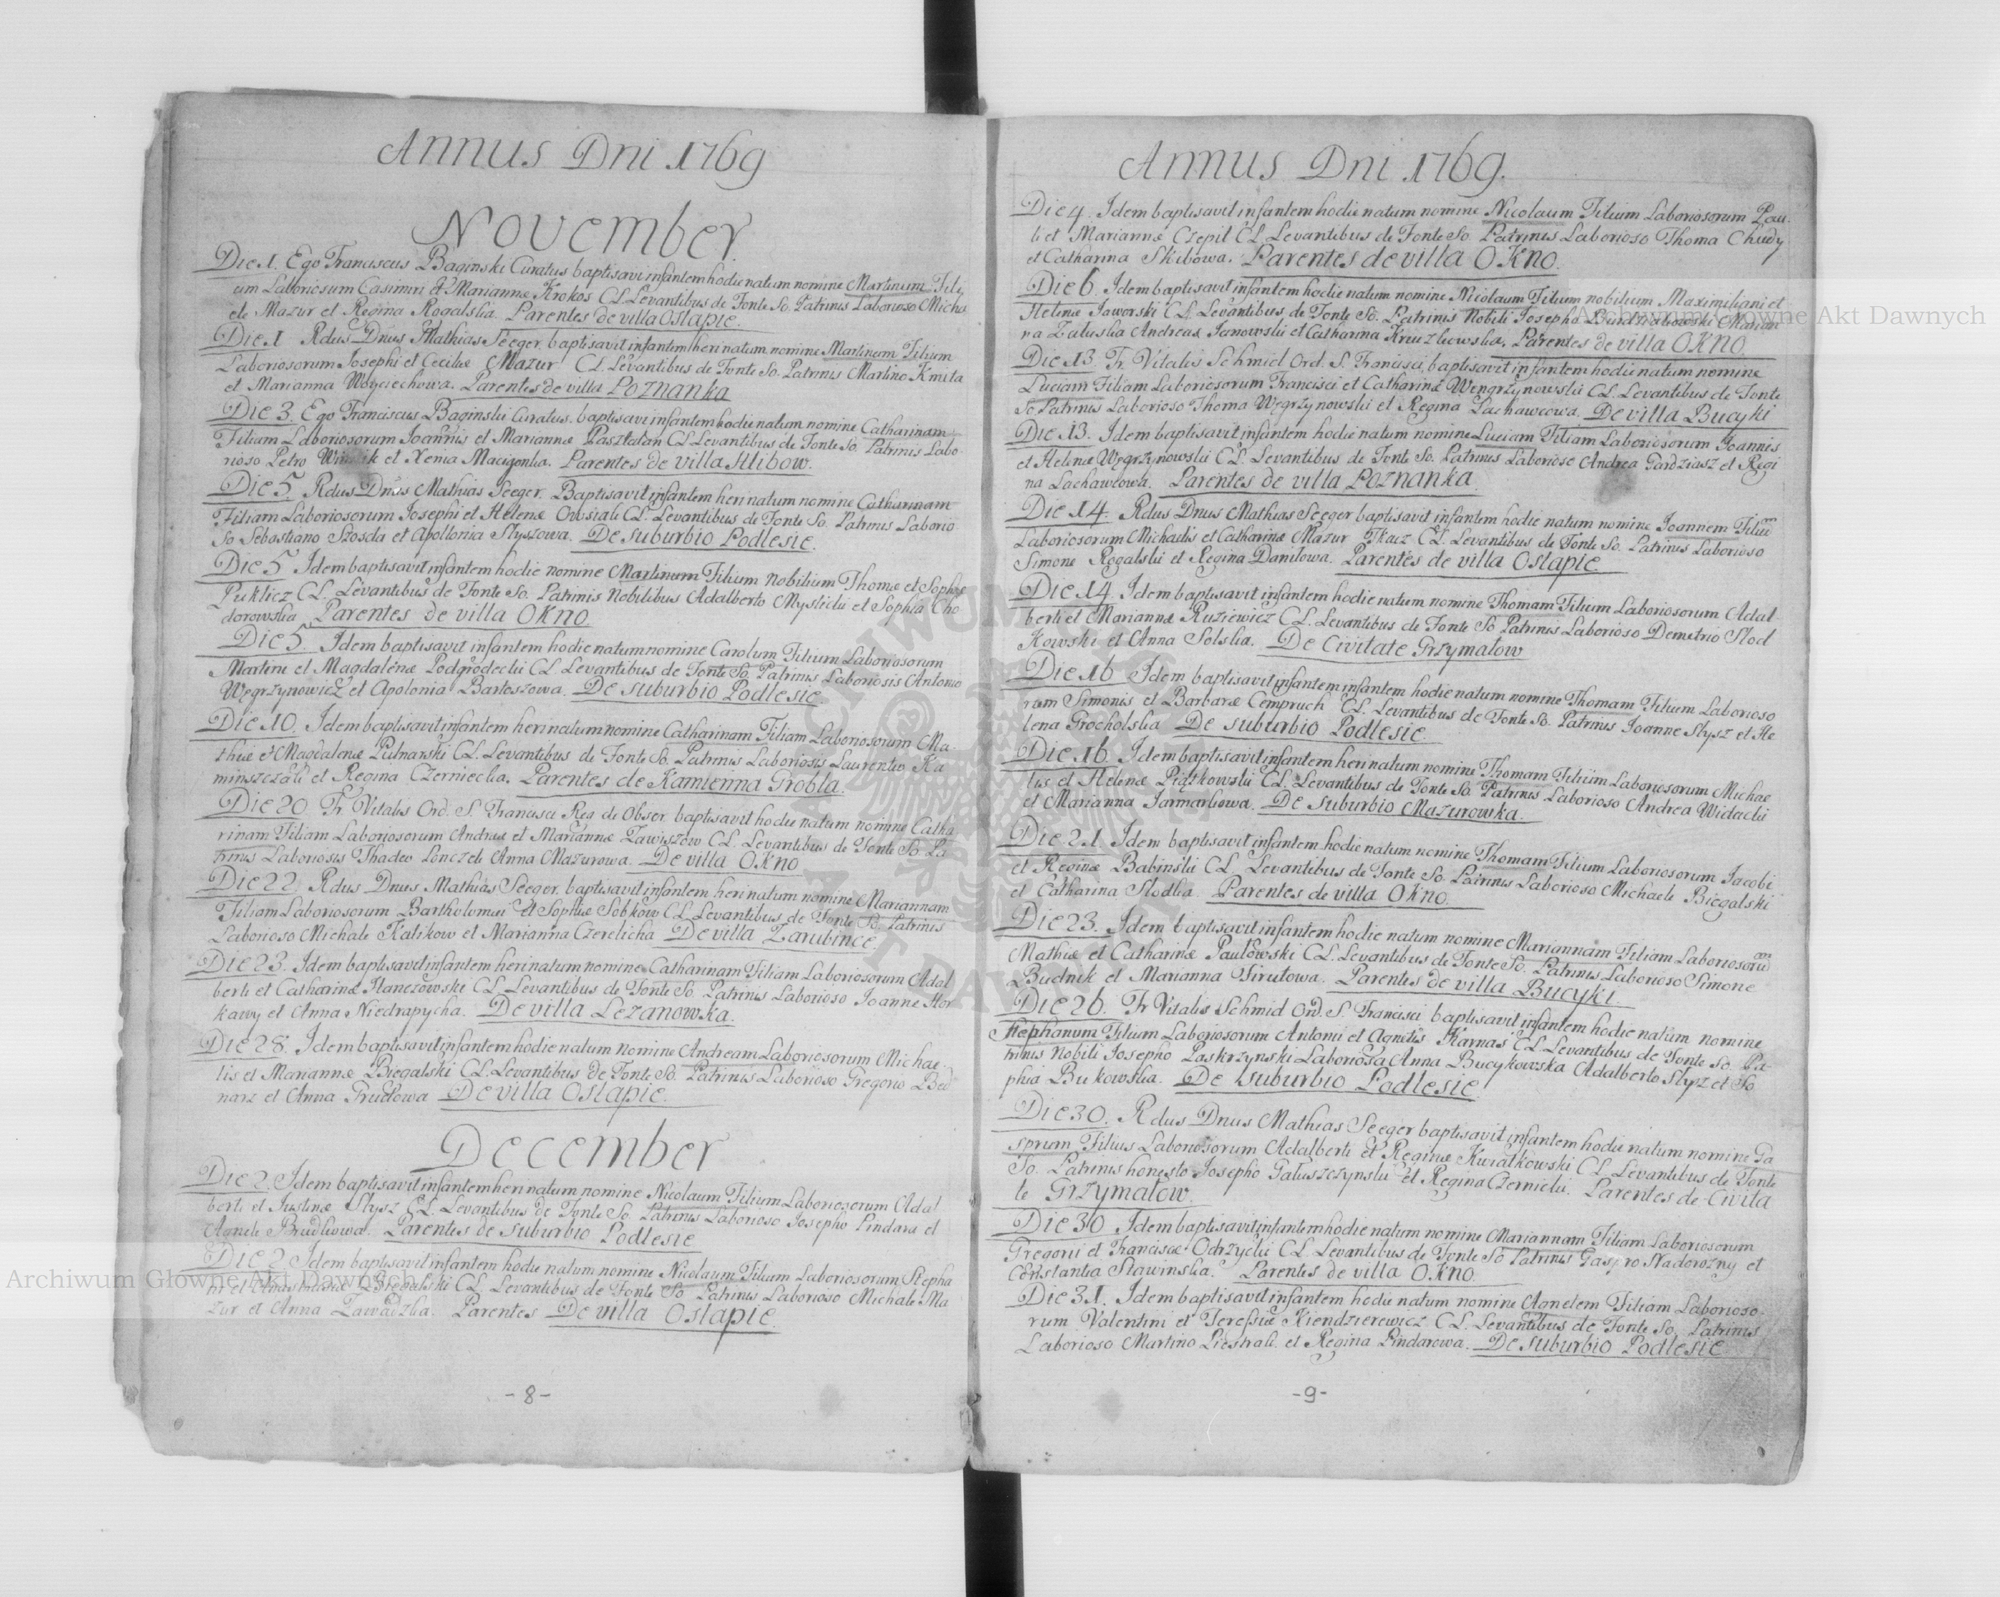 Annus Dni 1769
November
Die 1. Ego Franciscus Baginski Curatus baptisavi infantem hodie natum nomine Martinum Fili
um Laboriosum Casimiri & Mariannæ Krokos CL Levantibus de Fonte So. Patrinis Laborioso Micha
ele Mazur et Regina Rogalska. Parentes de villa Ostapie.
Die 1 Rdus Dnus Mathias Seeger. baptisavit infantem heri natum nomine Martinum Filium
Laboriosorum Josephi et Ceciliæ Mazur CL Levantibus de Fonte So. Patrinis Martino Kmita
et Marianna Woyciechowa. Parentes de villa Poznanka
Die 3. Ego Franciscus Baginski Curatus. baptisavi infantem hodie natum nomine Catharinam
Filiam Laboriosorum Joannis et Mariannæ Pasztelan CL Levantibus de Fonte So. Patrinis Labo-
rioso Petro et Xenia Macigonka. Parentes de villa Hlibow.
Die 5 Rdus Dnus Mathias Seeger. Baptisavit infantem heri natum nomine Catharinam
Filiam Laboriosorum Josephi et Helenæ Owsiak CL. Levantibus de Fonte So. Patrinis Laborio
So Sebastiano Szosda et Apollonia Slyszowa. De suburbio Podlesie.
Die 5 Idem baptisavit infantem hodie nomine Martinum Filium Nobilium Thomæ et Sophiæ
Puklicz CL. Levantibus de Fonte So. Patrinis Nobilibus Adalberto Myslicki et Sophia Cho
dorowska Parentes de villa OKNO
Die 5. Idem baptisavit infantem hodie natum nomine Carolum Filium Laboriosorum
Martini et Magdalenæ Podgrodecki CL Levantibus de Fonte So. Patrinis Laboriosis Antonio
Węgrzynowicz et Apolonia Bartoszowa. De suburbio Podlesie
Die 10. Idem baptisavit infantem heri natum nomine Catharinam Filiam Laboriosorum Ma-
thiæ et Magdalenæ Pulnarski CL Levantibus de Fonte So. Patrinis Laboriosis Laurentio Ka
minszczak et Regina Czerniecka. Parentes de Kamienna Grobla.
Die 20 Fr. Vitalis Ord. S. Francisci Reg de Obser. baptisavit hodie natum nomine Catha
rinam Filiam Laboriosorum Andreæ et Mariannæ Zawiszow CL Levantibus de Fonte So Pa
trinis Laboriosis Thadeo Lenczek Anna Mazurowa. De villa OKNO
Die 22 Rdus Dnus Mathias Seeger. baptisavit infantem heri natum nomine Mariannam
Filiam Laboriosorum Bartholomæi et Sophiæ Sobkow CL Levantibus de Fonte So. Patrinis
Laborioso Michale Kalikow et Marianna Czerelicha De villa Zarubince
Die 23. Idem baptisavit infantem heri natum nomine Catharinam Filiam Laboriosorum Adal
berti et Catharinæ Hanczowski CL Levantibus de Fonte So. Patrinis Laborioso Joanne Hor
kawy et Anna Niedrapycha. De villa Lezanowka.
Die 28. Idem baptisavit infantem hodie natum nomine Andream Laboriosorum Michae-
lis et Mariannæ Biegalski CL. Levantibus de Fonte So. Patrinis Laborioso Gregorio Bed
narz et Anna Fruckowa De villa Ostapie.
December
Die 2. Idem baptisavit infantem heri natum nomine Nicolaum Filium Laboriosorum Adal
berti et Justinæ Slysz CL Levantibus de Fonte So. Patrinis Laborioso Josepho Pindara et
Agnete Brudkowa. Parentes de suburbio Podlesie
Die 2. Idem baptisavit infantem hodie natum nomine Nicolaum Filium Laboriosorum Stepha
ni et Anastasiæ Biegalski CL Levantibus de Fonte So Patrinis Laborioso Michale Ma
zur et Anna Zawadzka. Parentes De villa Ostapie.
-8-
Annus Dni 1769.
Die 4. Idem baptisavit infantem hodie natum nomine Nicolaum Filium Laboriosorum Pau-
li et Mariannæ Czepil CL Levantibus de Fonte So. Patrinis Laborioso Thoma Chudy
et Catharina Skibowa. Parentes de villa OKNO.
Die 6. Idem baptisavit infantem hodie natum nomine Nicolaum Filium nobilium Maximiliani et
Helenæ Jaworski CL Levantibus de Fonte So. Patrinis Nobili Josepho Marian
na Zaluska Andreas Janowski et Catharina Kruszlowska. Parentes de villa OKNO
Die 13. Fr. Vitalis Schmiel Ord. S. Francisci. baptisavit infantem hodie natum nomine
Luciam Filiam Laboriosorum Francisci et Catharinæ Węngrzynowski CL. Levantibus de Fonte
So Patrinis Laborioso Thoma Węgrzynowski et Regina Lachawcowa. De villa Bucyki
Die 13. Idem baptisavit infantem hodie natum nomine Luciam Filiam Laboriosorum Joannis
et Helenæ Węgrzynowski CL. Levantibus de Fonte So. Patrinis Laborioso Andrea Gardziasz et Regi
na Lachawcowa. Parentes de villa Poznanka
Die 14. Rdus Dnus Mathias Seeger baptisavit infantem hodie natum nomine Joannem Filium
Laboriosorum Michaelis et Catharinæ Mazur Tkacz CL. Levantibus de Fonte So. Patrinis Laborioso
Simone Rogalski et Regina Danilowa. Parentes de villa Ostapie.
Die 14. Idem baptisavit infantem hodie natum nomine Thomam Filium Laboriosorum Adal
berti et Mariannæ Ruziewicz CL. Levantibus de Fonte So Patrinis Laborioso Demetrio Slod
Kowski et Anna Solska. De Civitate Grzymałow
Die 16 Idem baptisavit infantem infantem hodie natum nomine Thomam Filium Laborioso
rum Simonis et Barbaræ Cempruch CL. Levantibus de Fonte So. Patrinis Joanne Slysz et He
lena Grocholska De suburbio Podlesie.
Die 16. Idem baptisavit infantem heri natum nomine Thomam Filium Laboriosorum Michae
lis et Helenæ Piątkowski CL. Levantibus de Fonte So. Patrinis Laborioso Andrea Widecki
et Marianna Jarmarkowa. De suburbio Mazurowka.
Die 21 Idem baptisavit infantem hodie natum nomine Thomam Filium Laboriosorum Jacobi
et Reginæ Babinski CL Levantibus de Fonte So. Patrinis Laborioso Michaele Biegalski
et Catharina Slodka. Parentes de villa OKNO.
Die 23. Idem baptisavit infantem hodie natum nomine Mariannam Filiam Laboriosorum
Mathiæ et Catharinæ Paułowski CL. Levantibus de Fonte So. Patrinis Laborioso Simone
Budnik et Marianna Sirutowa. Parentes de villa Bucyki.
Die 26. Fr. Vitalis Schmid Ord. S. Francisci baptisavit infantem hodie natum nomine
Stephanum Filium Laboriosorum Antonii et Agnetis Karnas CL Levantibus de Fonte So. Pa-
trinis Nobili Josepho Paskrzynski Laboriosa Anna Bucykowska Adalberto Slysz et So
phia Bukowska. De suburbio Podlesie.
Die 30. Rdus Dnus Mathias Seeger baptisavit infantem hodie natum nomine Ga
sprum Filius Laboriosorum Adalberti et Reginæ Kwiatkowski CL Levantibus de Fonte
So. Patrinis honesto Josepho Gałuszczynski et Regina Czernicki. Parentes de Civita
te Grzymałow.
Die 30 Idem baptisavit infantem hodie natum nomine Mariannam Filiam Laboriosorum
Gregorii et Franciscæ Odrzycki CL Levantibus de Fonte So Patrinis Gaspro Nadorozny et
Constantia Sławinska. Parentes de villa OKNO
Die 31. Idem baptisavit infantem hodie natum nomine Agnetem Filiam Laborioso-
rum Valentini et Teressiæ Kiendzierewicz CL. Levantibus de Fonte So. Patrinis
Laborioso Martino Piestrak. et Regina Pindarowa. De suburbio Podlesie
-9-
Archiwum Główne Akt Dawnych
Archiwum Główne Akt Dawnych